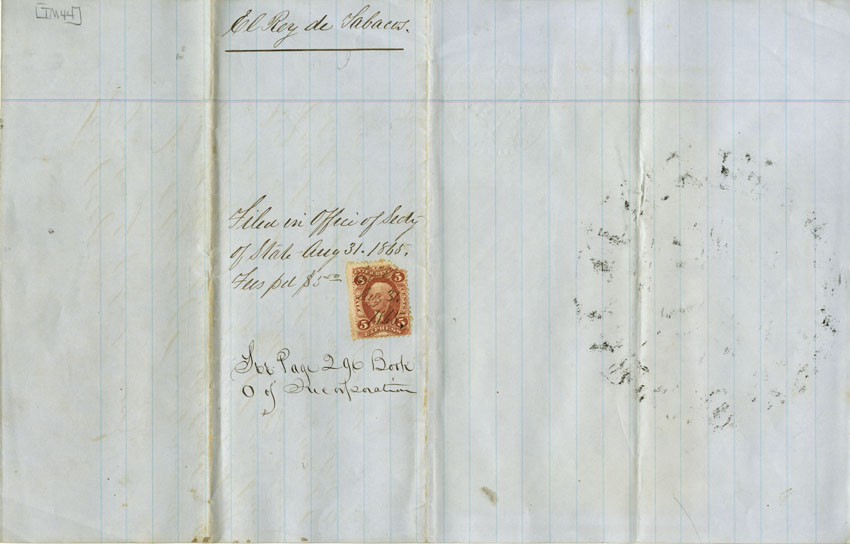 [TM44]
El Rey de Tabacos.
Filed in Office of Secty
of State Aug 31. 1865.
Fees pd $5.00
5 5
Aug 31
5 5
EXPRESS
See Page 296 Book
O of Incorporation